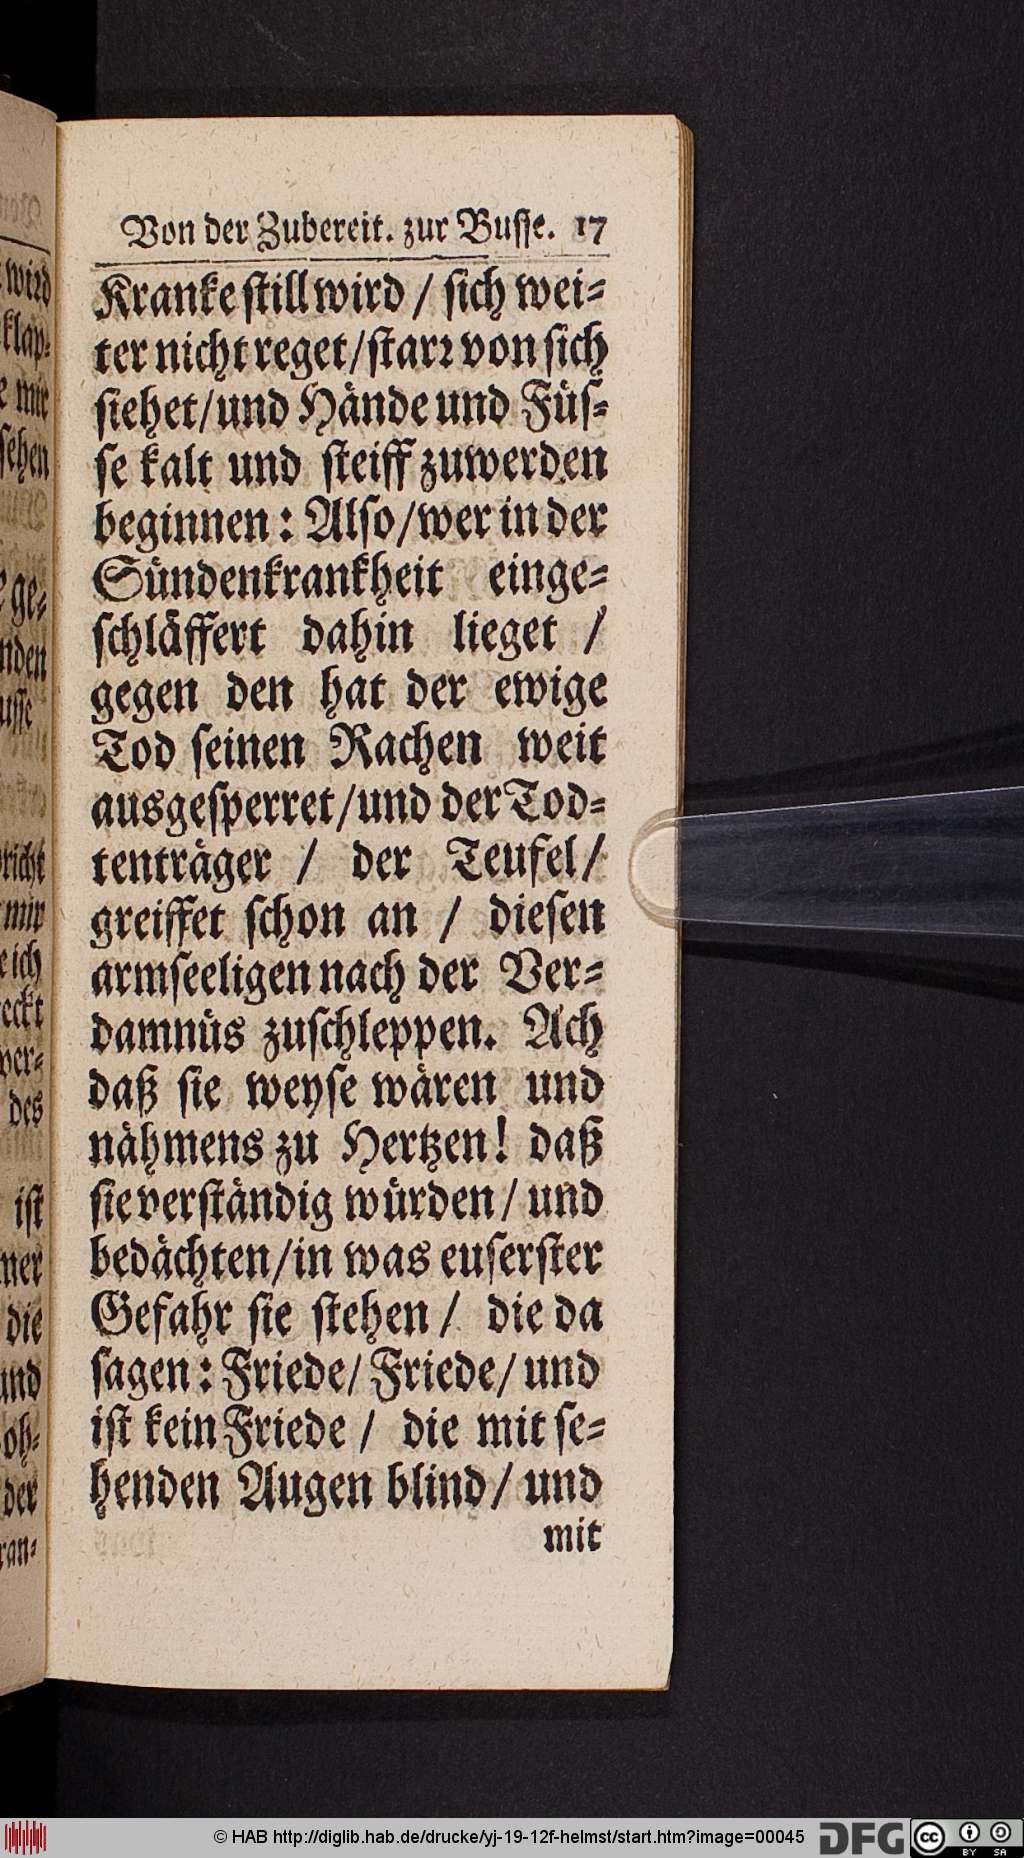 Von der Zubereit. zur Buſſe. 17
Kranke ſtill wird / ſich wei⸗
ter nicht reget/ſtarꝛ von ſich
ſiehet/und Hände und Füſ⸗
ſe kalt und ſteiff zuwerden
beginnen: Alſo/wer in der
Sündenkrankheit einge⸗
ſchläffert dahin lieget /
gegen den hat der ewige
Tod ſeinen Rachen weit
ausgeſperret/und der Tod⸗
tenträger / der Teufel/
greiffet ſchon an / dieſen
armſeeligen nach der Ver⸗
damnüs zuſchleppen. Ach
daß ſie weyſe wären und
nähmens zu Hertzen! daß
ſie verſtändig würden/ und
bedächten/in was euſerſter
Gefahr ſie ſtehen / die da
ſagen: Friede/ Friede/ und
iſt kein Friede / die mit ſe⸗
henden Augen blind/ und
mit
wird
klap⸗
mir
ſehen
ge⸗
nden
uſſe
richt
mir
ich
eckt
ver⸗
des
iſt
ner
die
und
oh⸗
der
ran⸗
© HAB http://diglib.hab.de/drucke/yj-19-12f-helmst/start.htm?image=00045
DFG
cc BY SA